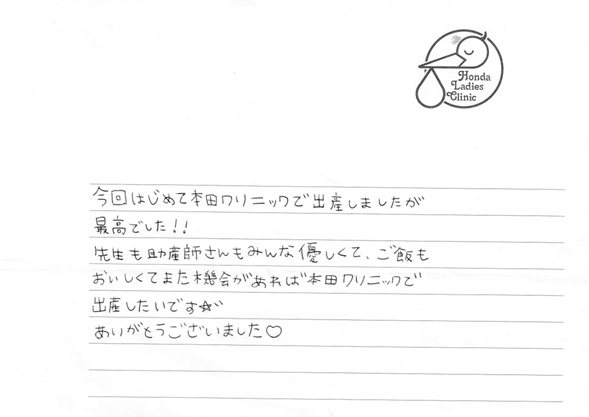 Honda
Ladies
Clinic
今回はじめて本田クリニックで出産しましたが
最高でした!!
先生も助産師さんもみんな優しくて、ご飯も
おいしくてまた機会があれば本田クリニックで
出産したいです☆
ありがとうございました♡